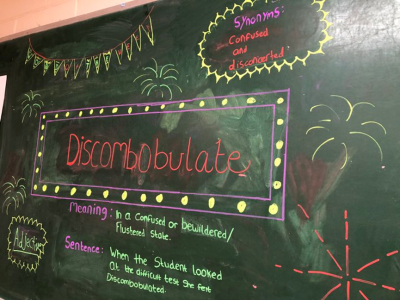 Synonyms:
Confused
and
disconcerted
Discombobulate
Meaning: In a confused or bewildered/
Flustered State.
Adjective
Sentence: When the Student looked
at the difficult test She felt
Discombobulated.